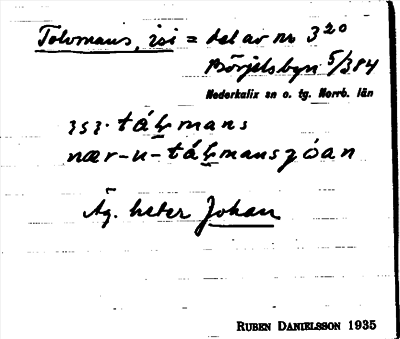 Tolvmans, isi = del av nr 3²⁰
Börjelsbyn 5/384
Nederkalix sn o. tg. Norrb. län
tálmans
nær-u-tálmans jóan
Äg. heter Johan
RUBEN DANIELSSON 1935